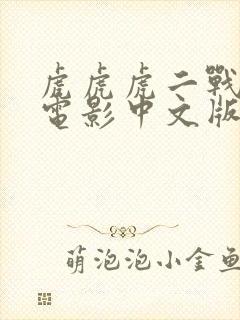 虎虎虎二戰
電影中文版
萌泡泡小金魚